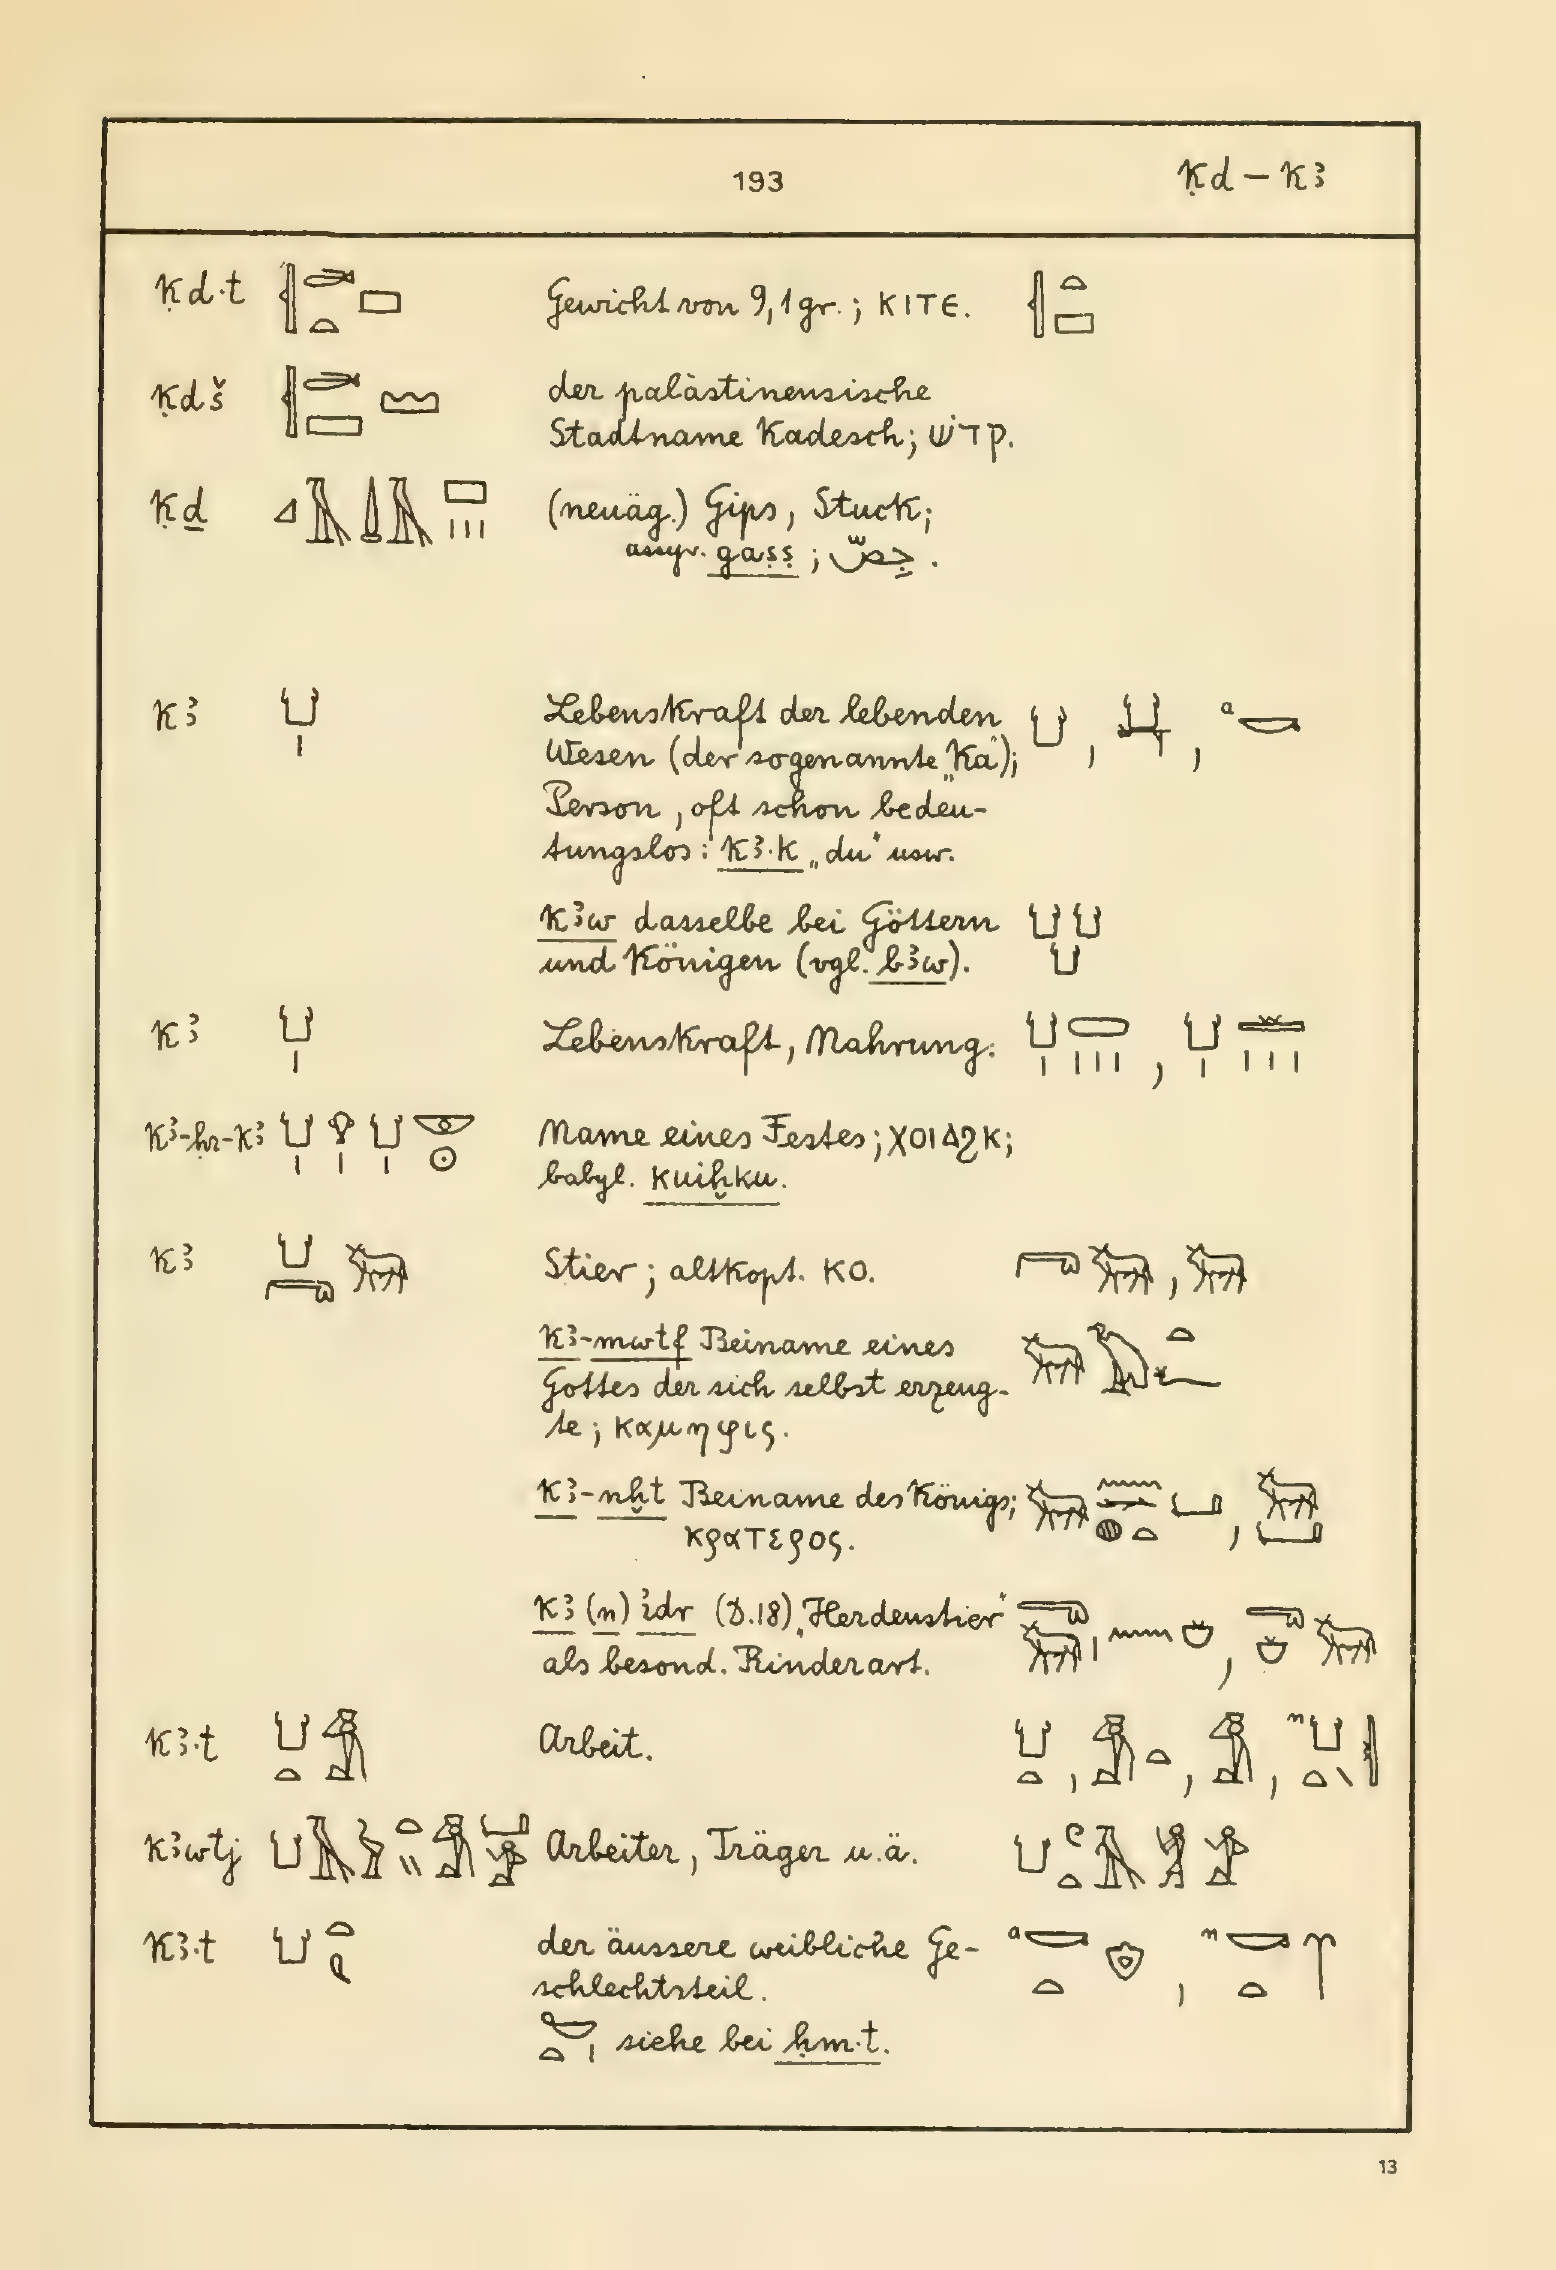 193
ḳd – kꜣ
ḳd·t Gewicht von 9,1 gr.; KITE.
ḳdš der palästinensische
Stadtname Kadesch; קדש.
ḳḏ (neuäg.) Gips, Stuck;
assyr. gaṣṣ; جِصّ.
kꜣ Lebenskraft der lebenden
Wesen (der sogenannte „Ka“);
Person, oft schon bedeu-
tungslos: kꜣ·k „du“ usw.
kꜣw dasselbe bei Göttern
und Königen (vgl. bꜣw).
kꜣ Lebenskraft, Nahrung.
kꜣ-ḥr-kꜣ Name eines Festes; ⲬⲞⲒⲀϨⲔ;
babyl. kuiḫku.
kꜣ Stier; altkopt. ⲔⲞ.
kꜣ-mwtf Beiname eines
Gottes der sich selbst erzeug-
te; καμηφις.
kꜣ-nḫt Beiname des Königs;
κρατερος.
kꜣ (n) ꞽdr (D.18) „Herdenstier“
als besond. Rinderart.
kꜣ·t Arbeit.
kꜣwtj Arbeiter, Träger u.ä.
kꜣ·t der äussere weibliche Ge-
schlechtsteil.
siehe bei ḥm·t.
13